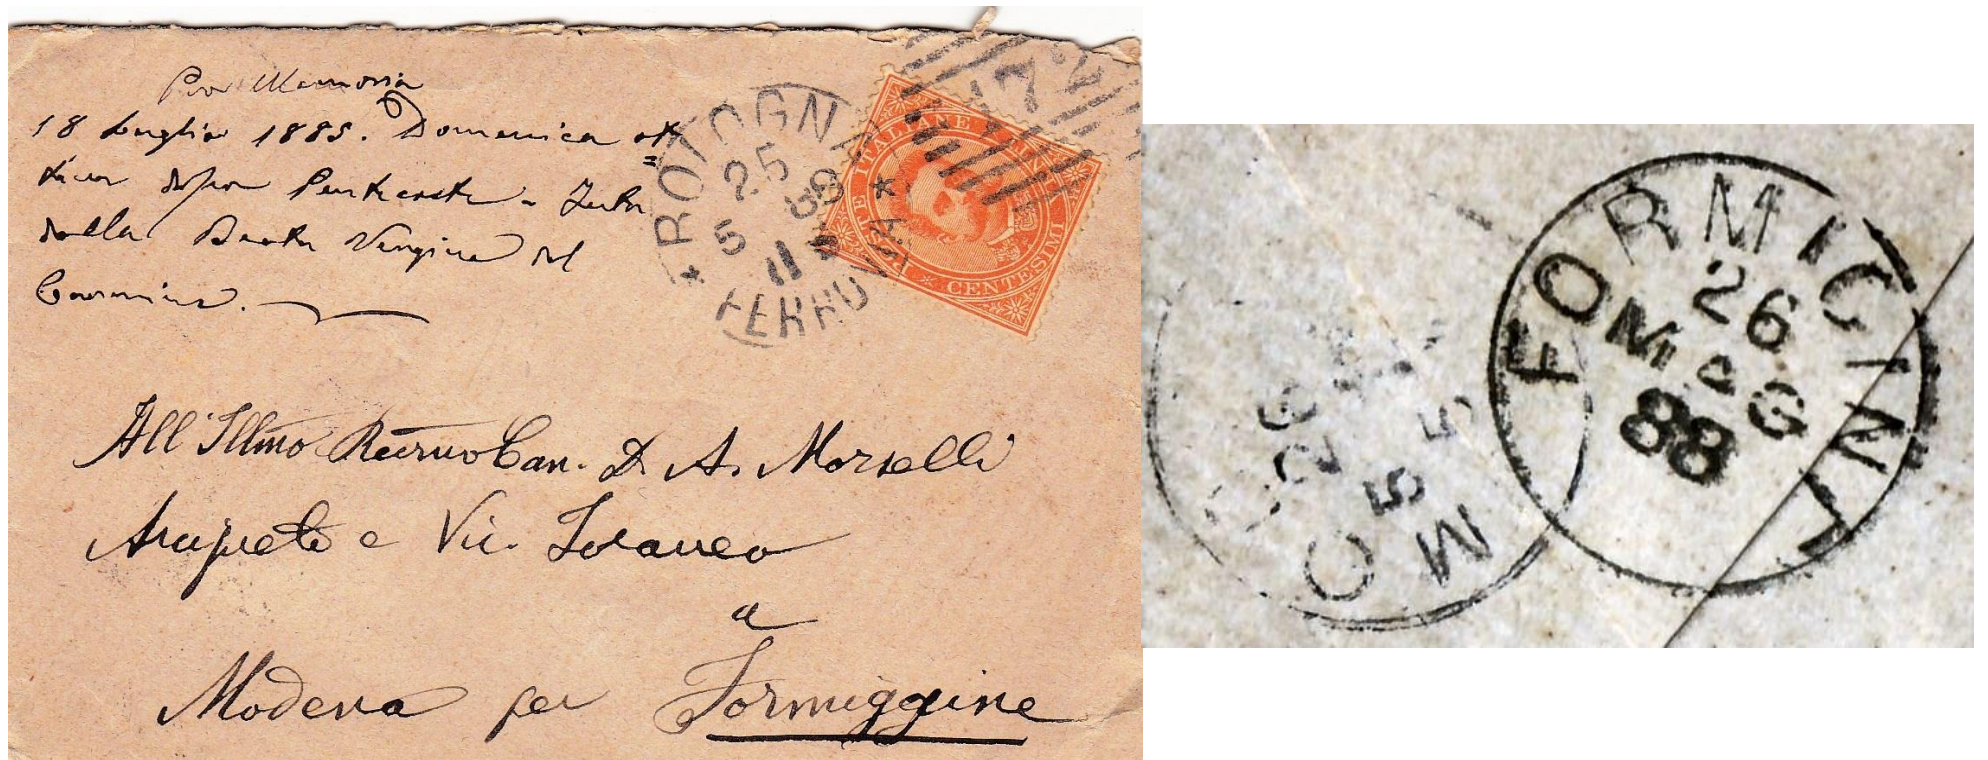 Pro Memoria
18 Luglio 1885. Domenica ot=
tava dopo Pentecoste - Festa
della Beata Vergine del
Carmine.
BOLOGNA
25
5 88
11
* FERROVIA *
172
POSTE ITALIANE
CENTESIMI
All' Illmo Revmo Can. D. A. Morselli
Arciprete e Vic. Foraneo
a
Modena per Formiggine
FORMIGINE
26
MAG
88
MO
26
5
5